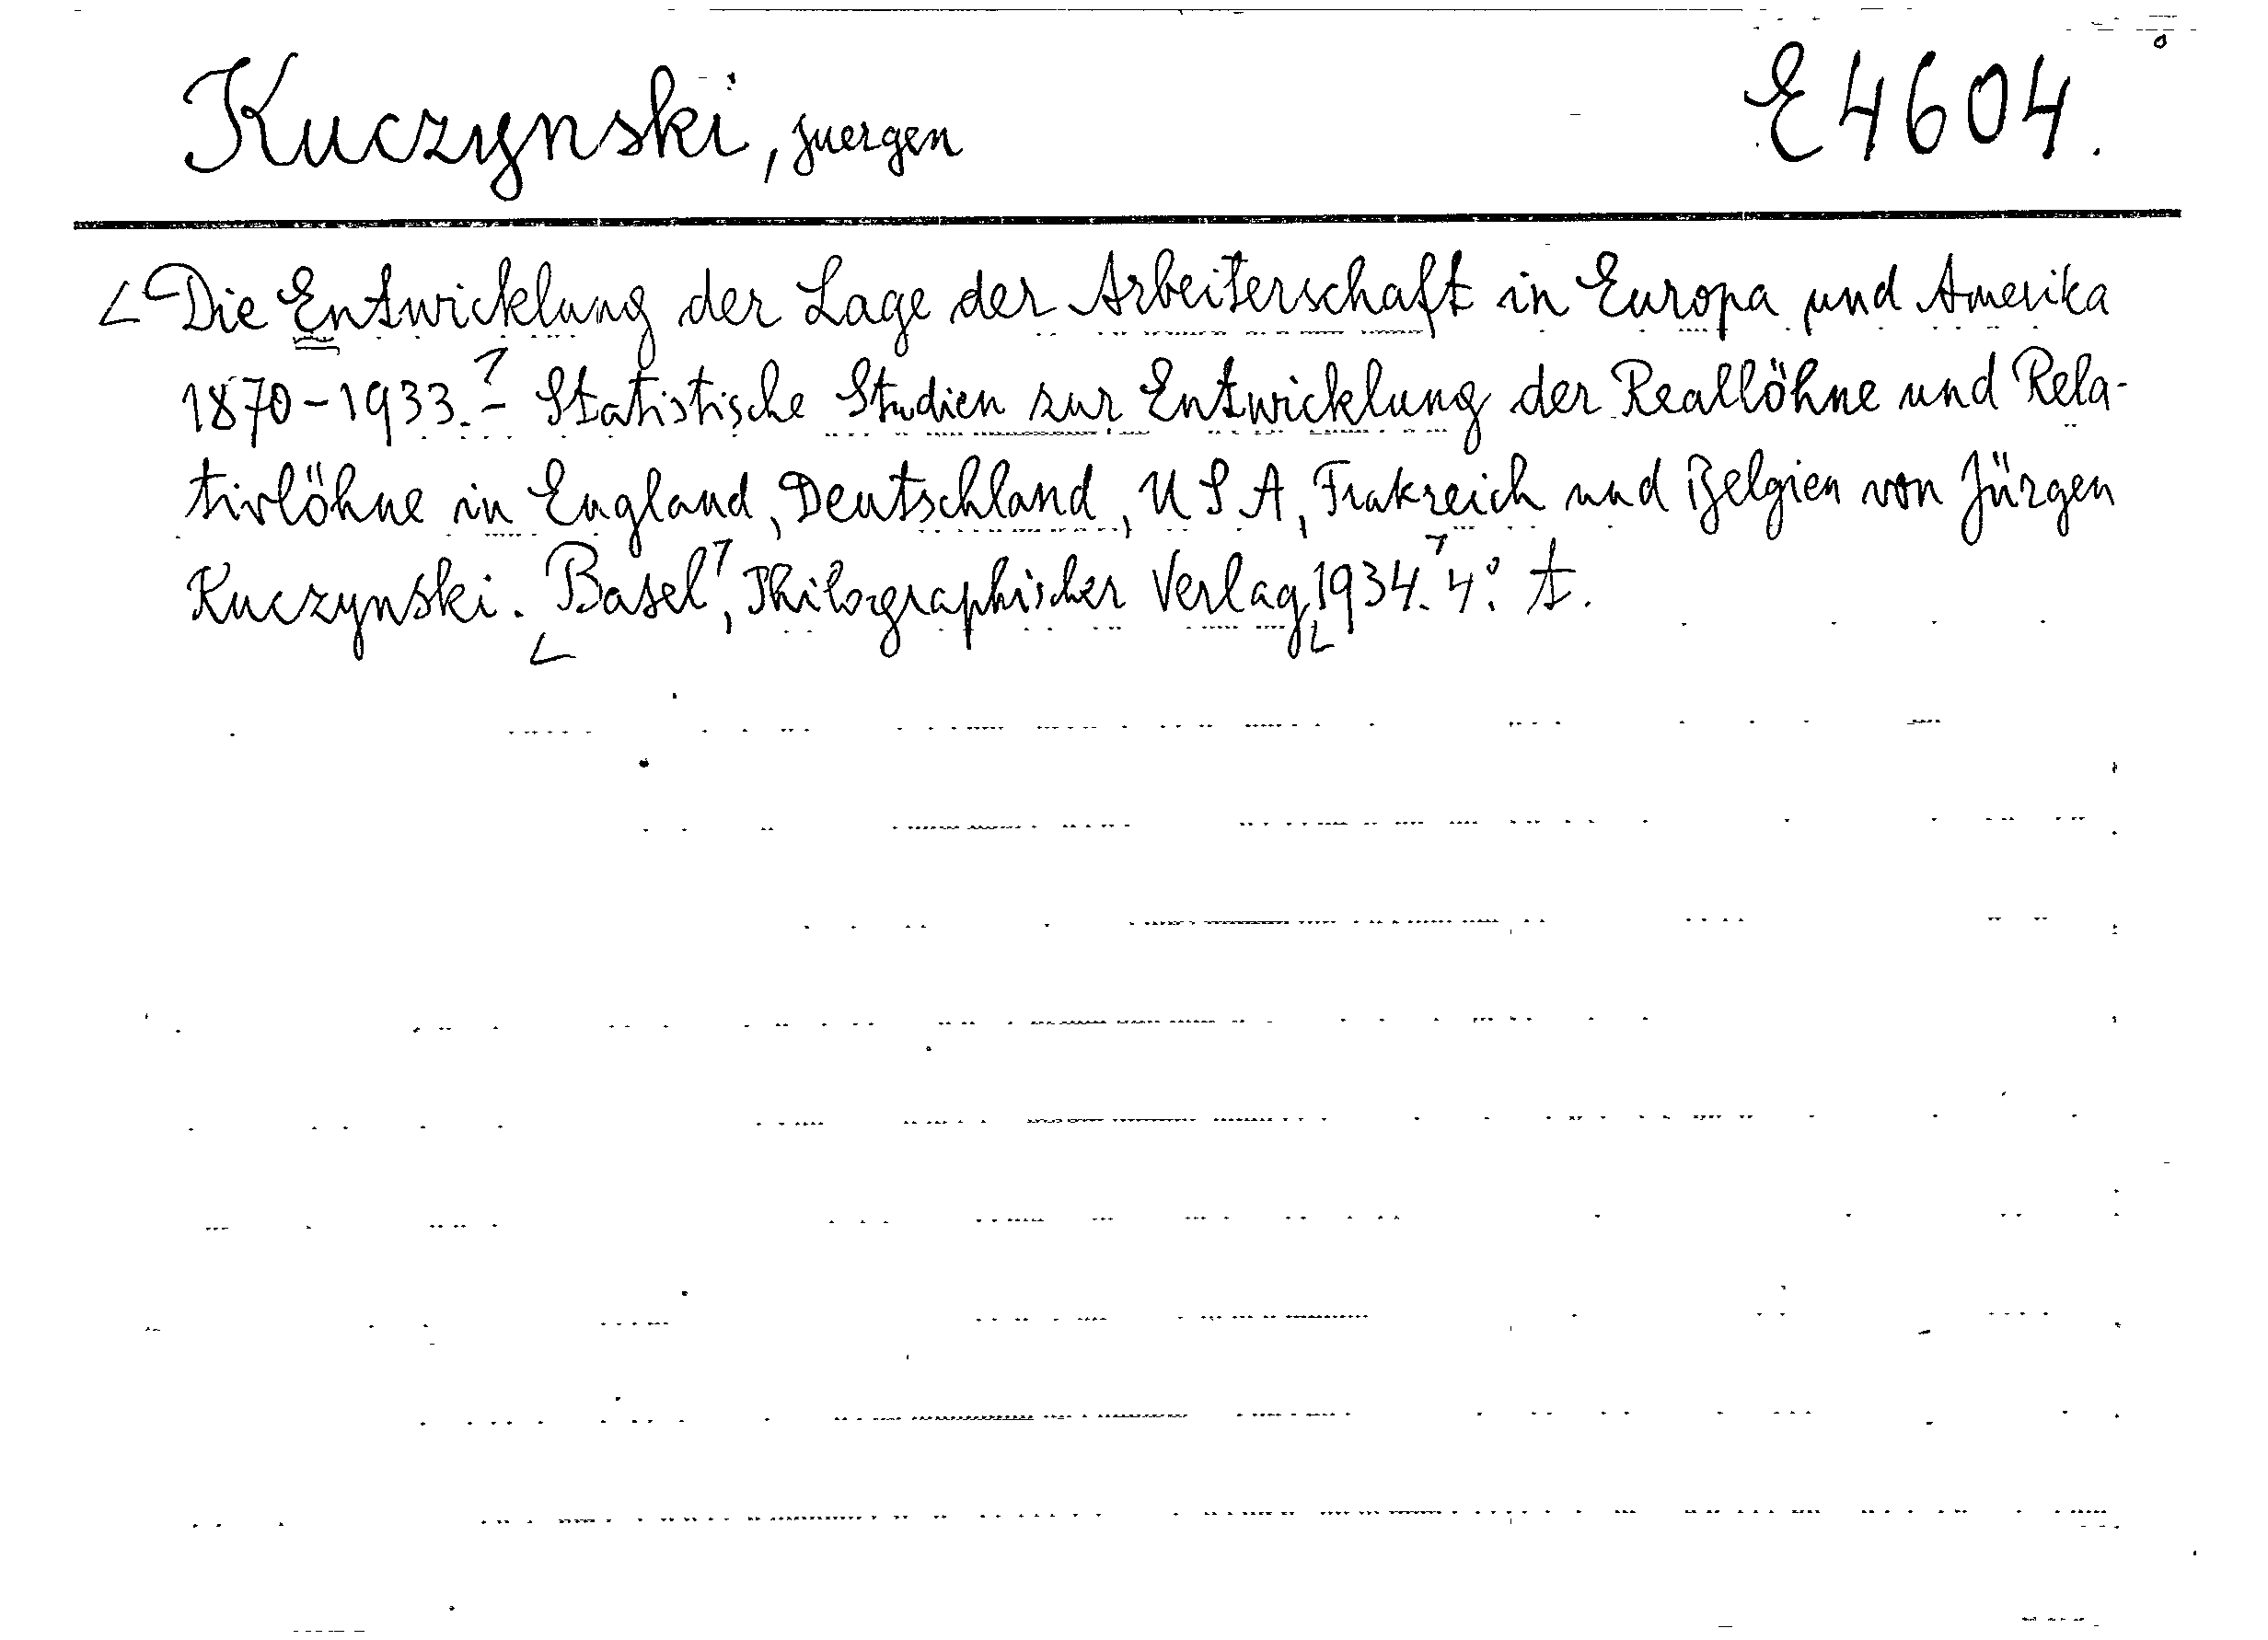 Kuczynski, Juergen E4604.
Die Entwicklung der Lage der Arbeiterschaft in Europa und Amerika
1870-1933.- Statistische Studien zur Entwicklung der Reallöhne und Rela-
tivlöhne in England, Deutschland, USA, Frakreich und Belgien von Jürgen
Kuczynski. Basel, Philographischer Verlag, 1934. 4°. t.